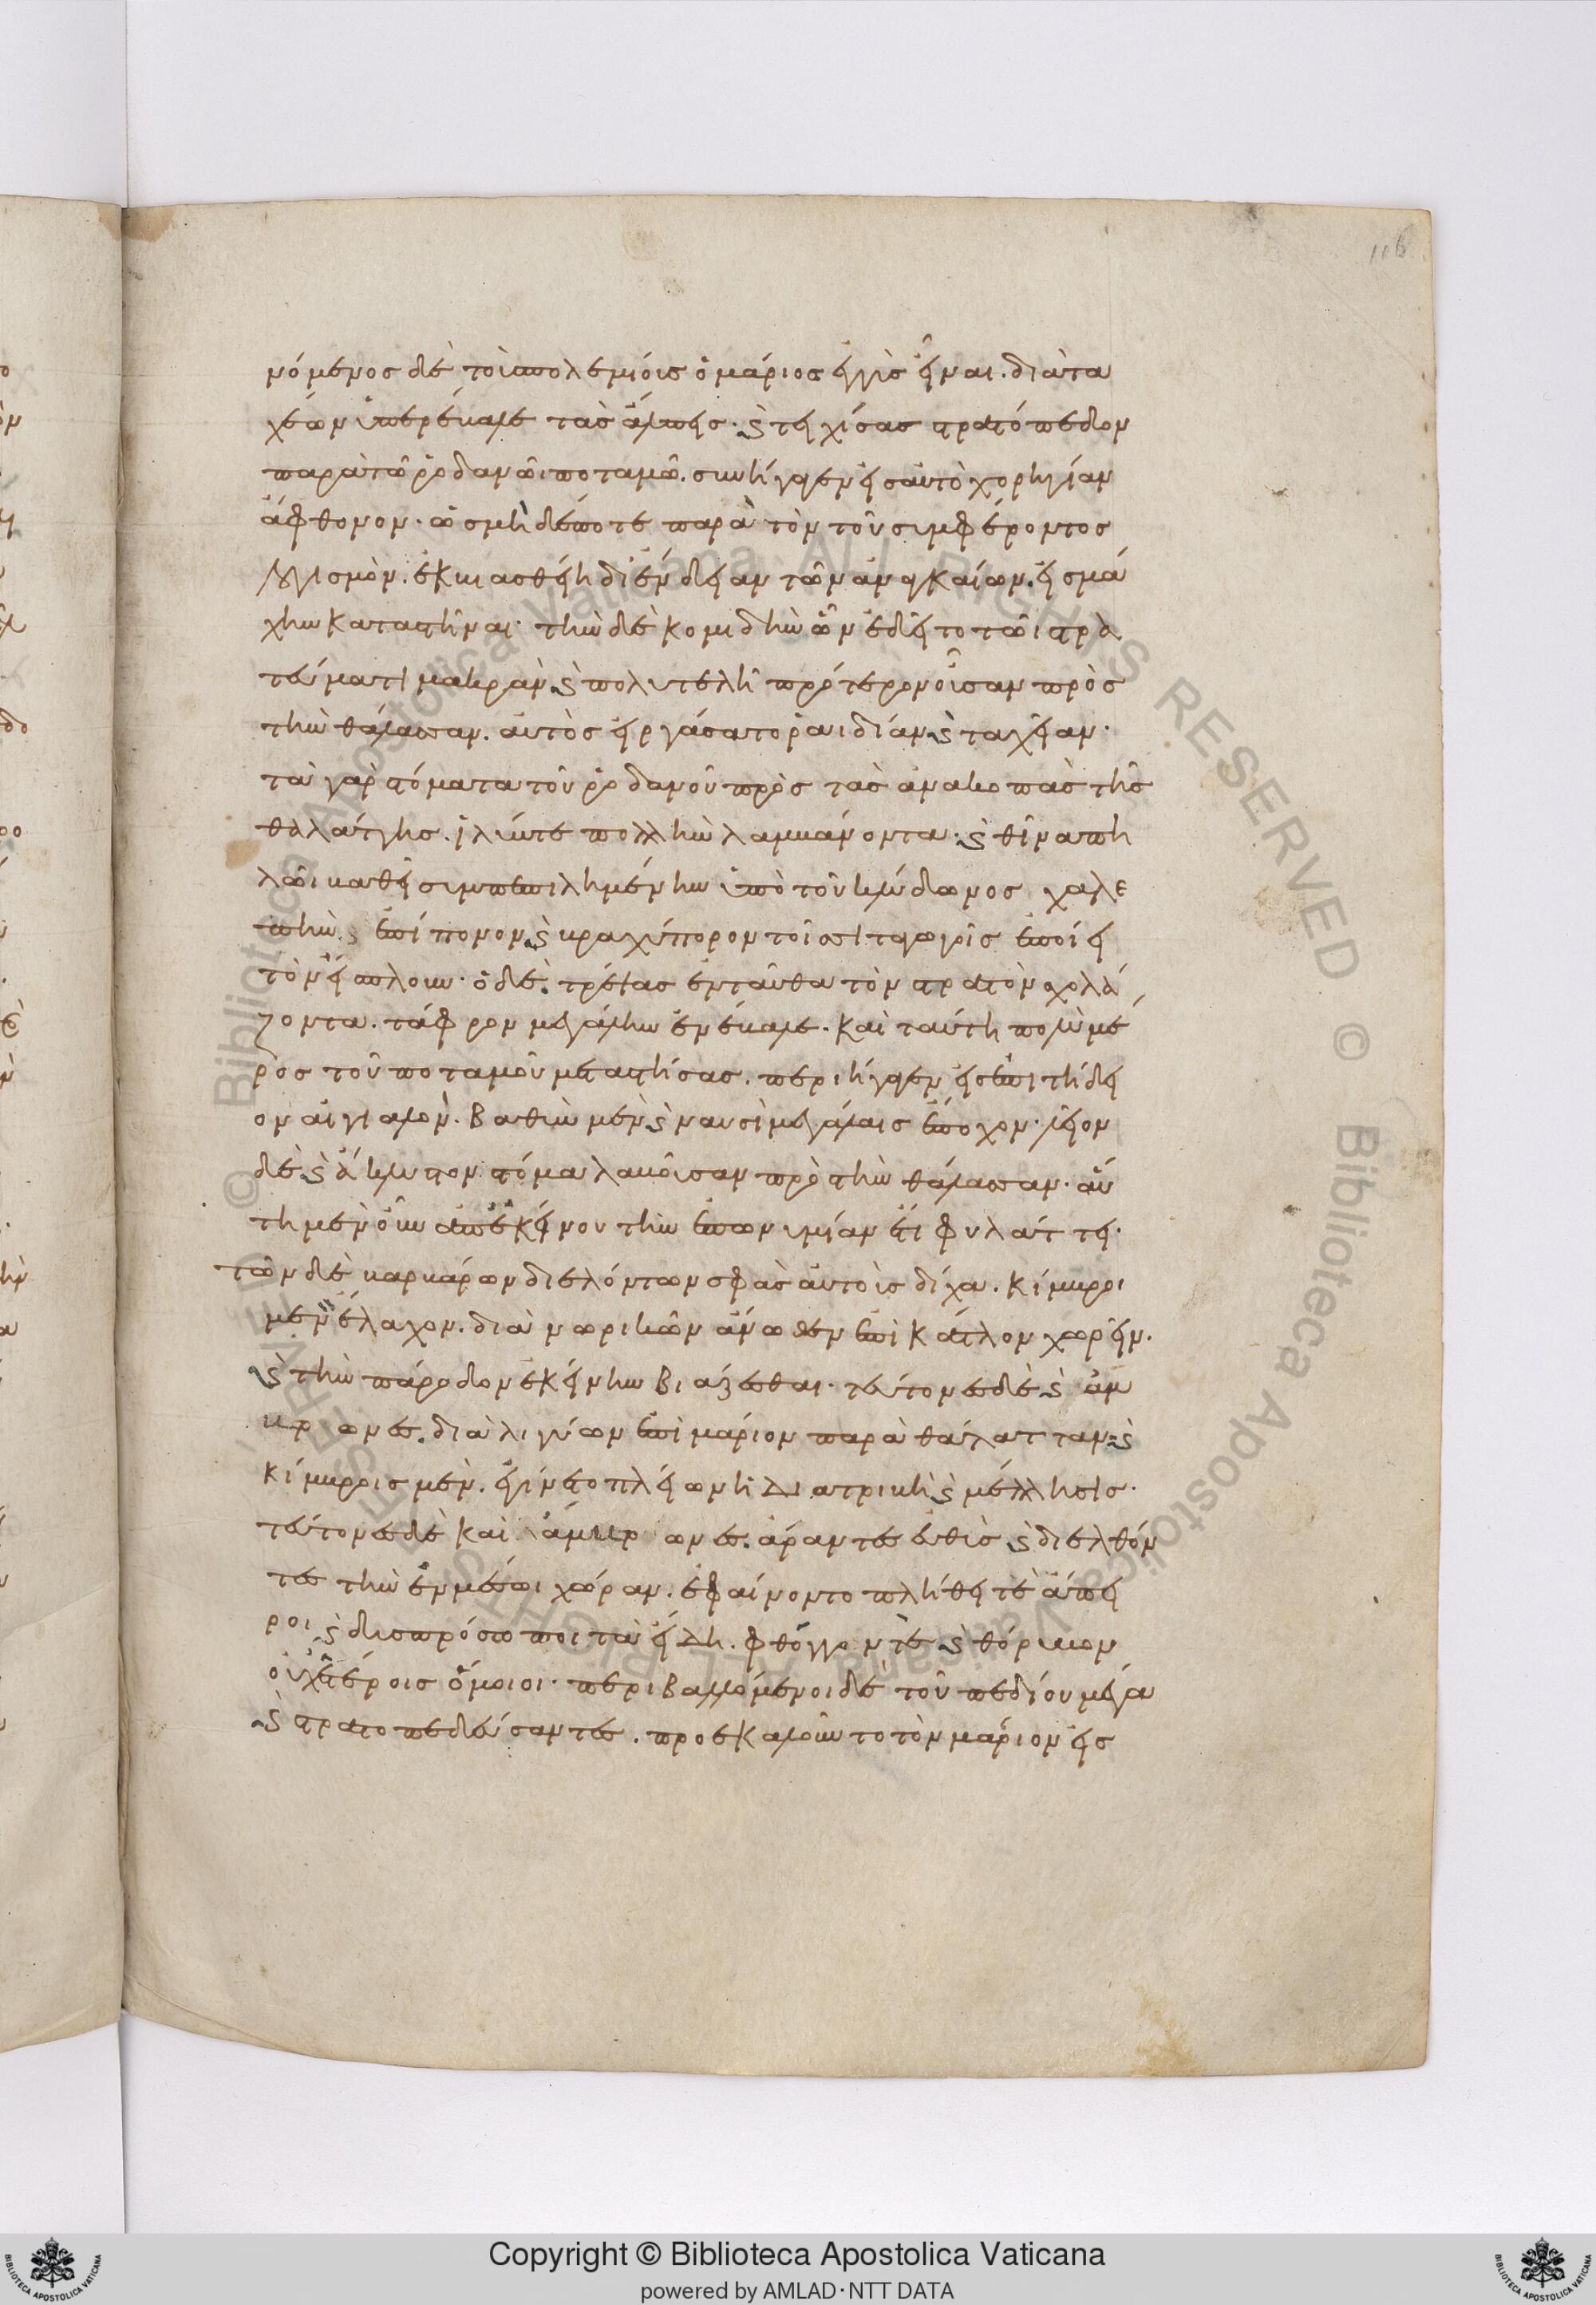 νόμενος δὲ τοὺς πολεμίους ὁ μάριος ἐγγὺς εἶναι. διὰ τα
χέων ὑπερέβαλε τὰς ἄλπεις· καὶ τειχίσας στρατόπεδον
παρὰ τῶ ῥοδανῶι ποταμῶ. συνήγαγεν εἰς αὐτὸ χορηγίαν
ἄφθονον· ὡς μὴ δέποτε παρὰ τὸν τοῦ συμφέροντος
λογισμὸν. ἐκβιασθείη δι' ἔνδειαν τῶν ἀναγκαίων. εἰς μά
χην καταστῆναι· τὴν δὲ κομιδὴν ὧν ἐδεῖτο τῶι στρα
τεύματι μακρὰν καὶ πολυτελῆ πρότερον οὖσαν πρὸς
τὴν θάλασσαν. αὐτὸς εἰργάσατο ῥαιδίαν καὶ ταχεῖαν·
τὰ γὰρ στόματα τοῦ ῥοδανοῦ πρὸς τὰς ἀνακοπὰς τῆς
θαλάττης. ἰλύν τε πολλὴν λαμβάνοντα· καὶ θῖνα πη
λῶι βαθεῖ συμπεπιλημένην ὑπὸ τοῦ κλύδωνος χαλε
πὴν καὶ ἐπίπονον καὶ βραχύπορον τοῖς σιταγωγοῖς ἐποίει
τὸν εἴσπλουν· ὁ δὲ. τρέψας ἐνταῦθα τὸν στρατὸν σχολά
ζοντα. τάφρον μεγάλην ἐνέβαλε. καὶ ταύτη πολὺ μέ
ρος τοῦ ποταμοῦ μεταστήσας. περιήγαγεν εἰς ἐπιτήδει
ον αἰγιαλὸν. βαθὺ μὲν καὶ ναυσὶ μεγάλαις ἔποχον· λεῖον
δὲ καὶ ἄκλυστον στόμα λαβοῦσαν πρὸς τὴν θάλασσαν. αὕ
τη μὲν οὖν ἀπ' ἐκείνου τὴν ἐπωνυμίαν ἔτι φυλάττει·
τῶν δὲ βαρβάρων διελόντων σφᾶς αὐτοὺς δίχα. κίμβροι
μὲν ἔλαχον. διὰ νωρικῶν ἄνωθεν ἐπὶ κάτλον χωρεῖν.
καὶ τὴν πάροδον ἐκείνην βιάζεσθαι· τεύτονες δὲ καὶ ἄμ
βρωνες. διὰ λιγύων ἐπὶ μάριον παρὰ θάλατταν· καὶ
κίμβροις μὲν. ἐγίνετο πλείων ἡ διατριβὴ καὶ μέλλησις·
τεύτονες δὲ καὶ ἄμβρωνες. ἄραντες εὐθὺς καὶ διελθόν
τες τὴν ἐν μέσωι χώραν. ἐφαίνοντο πλήθει τὲ ἄπει
ροι καὶ δυσπρόσωποι τὰ εἴδη. φθόγγον τὲ καὶ θόρυβον
οὐχ ἑτέροις ὅμοιοι· περιβαλλόμενοι δὲ τοῦ πεδίου μέγα
καὶ στρατοπεδεύσαντες. προὐκαλοῦντο τὸν μάριον εἰς
Copyright © Biblioteca Apostolica Vaticana
powered by AMLAD·NTT DATA